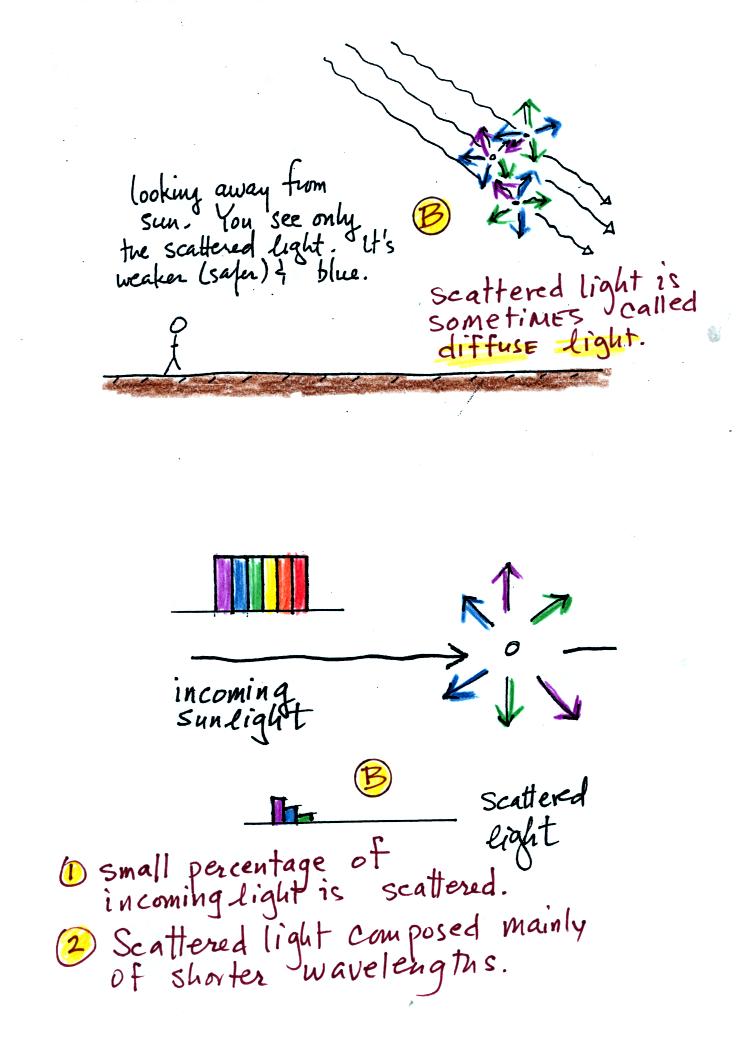 looking away from
sun. You see only
the scattered light. It's
weaker (safer) & blue.
B
scattered light is
sometimes called
diffuse light.
incoming
sunlight
B
scattered
light
1 small percentage of
incoming light is scattered.
2 Scattered light composed mainly
of shorter wavelengths.